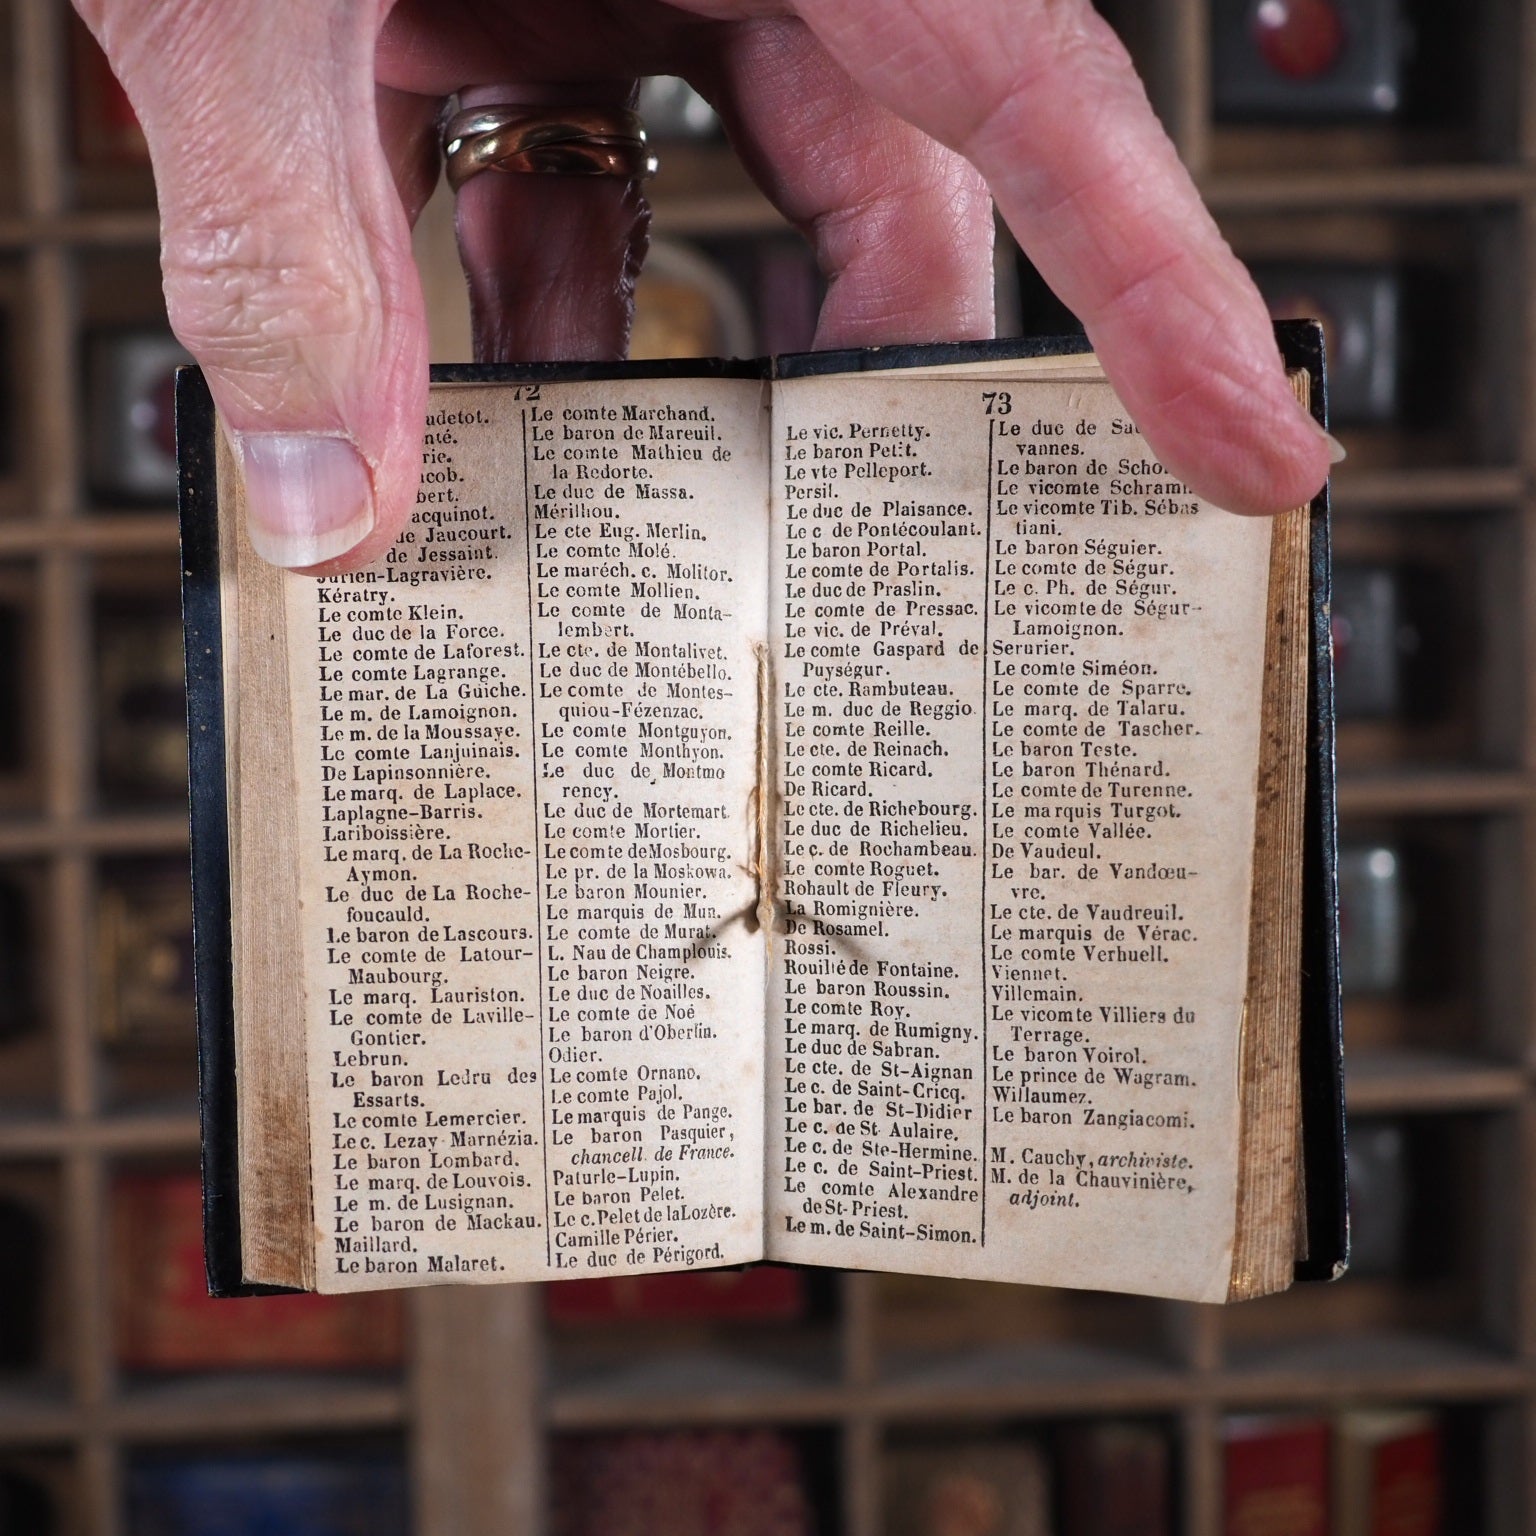 72
Le comte Klein.
Jurien-Lagravière.
Kératry.
Le duc de la Force.
Le comte de Laforest.
Le comte Lagrange.
Le mar. de La Guiche.
Le m. de Lamoignon.
Le m. de la Moussaye.
Le comte Lanjuinais.
De Lapinsonnière.
Le marq. de Laplace.
Laplagne-Barris.
Lariboissière.
Le marq. de La Roche-
Aymon.
Le duc de La Roche-
foucauld.
Le baron de Lascours.
Le comte de Latour-
Maubourg.
Le marq. Lauriston.
Le comte de Laville-
Gontier.
Lebrun.
Le baron Ledru des
Essarts.
Le comte Lemercier.
Le c. Lezay Marnézia.
Le baron Lombard.
Le marq. de Louvois.
Le m. de Lusignan.
Le baron de Mackau.
Maillard.
Le baron Malaret.
Le comte Marchand.
Le baron de Mareuil.
Le comte Mathieu de
la Redorte.
Le duc de Massa.
Mérilhou.
Le cte Eug. Merlin.
Le comte Molé.
Le maréch. c. Molitor.
Le comte Mollien.
Le comte de Monta-
lembert.
Le cte. de Montalivet.
Le duc de Montébello.
Le comte de Montes-
quiou-Fézenzac.
Le comte Montguyon.
Le comte Monthyon.
Le duc de Montmo
rency.
Le duc de Mortemart.
Le comte Mortier.
Le comte de Mosbourg.
Le pr. de la Moskowa.
Le baron Mounier.
Le marquis de Mun.
Le comte de Murat.
L. Nau de Champlouis.
Le baron Neigre.
Le duc de Noailles.
Le comte de Noé
Le baron d'Oberlin.
Odier.
Le comte Ornano.
Le comte Pajol.
Le marquis de Pange.
Le baron Pasquier,
chancell. de France.
Paturle-Lupin.
Le baron Pelet.
Le c. Pelet de la Lozère.
Camille Périer.
Le duc de Périgord.
73
Le vic. Pernetty.
Le baron Petit.
Le vte Pelleport.
Persil.
Le duc de Plaisance.
Le c de Pontécoulant.
Le baron Portal.
Le comte de Portalis.
Le duc de Praslin.
Le comte de Pressac.
Le vic. de Préval.
Le comte Gaspard de
Puységur.
Le cte. Rambuteau.
Le m. duc de Reggio.
Le comte Reille.
Le cte. de Reinach.
Le comte Ricard.
De Ricard.
Le cte. de Richebourg.
Le duc de Richelieu.
Le c. de Rochambeau.
Le comte Roguet.
Rohault de Fleury.
La Romignière.
De Rosamel.
Rossi.
Rouillé de Fontaine.
Le baron Roussin.
Le comte Roy.
Le marq. de Rumigny.
Le duc de Sabran.
Le cte. de St-Aignan
Le c. de Saint-Cricq.
Le bar. de St-Didier
Le c. de St Aulaire.
Le c. de Ste-Hermine.
Le c. de Saint-Priest.
Le comte Alexandre
de St-Priest.
Le m. de Saint-Simon.
Le duc de
vannes.
Le baron de
Le vicomte Schramm.
Le vicomte Tib. Sébas
tiani.
Le baron Séguier.
Le comte de Ségur.
Le c. Ph. de Ségur.
Le vicomte de Ségur-
Lamoignon.
Serurier.
Le comte Siméon.
Le comte de Sparre.
Le marq. de Talaru.
Le comte de Tascher.
Le baron Teste.
Le baron Thénard.
Le comte de Turenne.
Le marquis Turgot.
Le comte Vallée.
De Vaudeul.
Le bar. de Vandœu-
vre.
Le cte. de Vaudreuil.
Le marquis de Vérac.
Le comte Verhuell.
Viennet.
Villemain.
Le vicomte Villiers du
Terrage.
Le baron Voirol.
Le prince de Wagram.
Willaumez.
Le baron Zangiacomi.
M. Cauchy, archiviste.
M. de la Chauvinière,
adjoint.